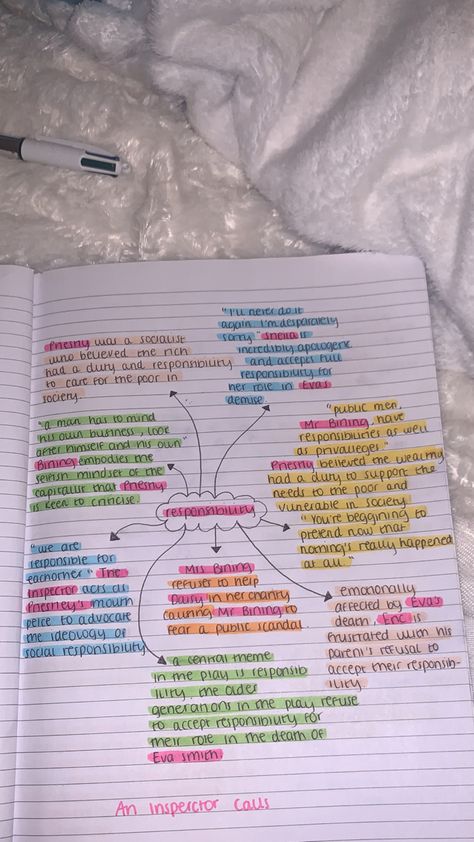 "I'll never do it
again. I'm desparately
sorry" Sheila is
incredibly apologetic
and accepts full
responsibility for
her role in Eva's
demise.
Priestly was a socialist
who believed the rich
had a duty and responsibility
to care for the poor in
society.
"a man has to mind
his own business, look
after himself and his own"
Birling embodies the
selfish mindset of the
capitalist that Priestly
is keen to criticise.
"public men,
Mr Birling, have
responsibilities as well
as privalleges"
Priestly believed the wealthy
had a duty to support the
needs to the poor and
vunerable in society.
"You're beggining to
pretend now that
nothing's really happened
at all"
responsibility
"we are
responsible for
eachother" The
Inspector acts as
Priestley's mouth
peice to advocate
the ideology of
social responsibility
Mrs Birling
refuses to help
Daisy in her charity
causing Mr Birling to
fear a public scandal.
emotionally
affected by Eva's
death, Eric is
frustrated with his
parent's refusal to
accept their responsib-
ility.
a central theme
in the play is responsib
ility. the older
generations in the play refuse
to accept responsibility for
their role in the death of
Eva smith.
An Insperctor Calls